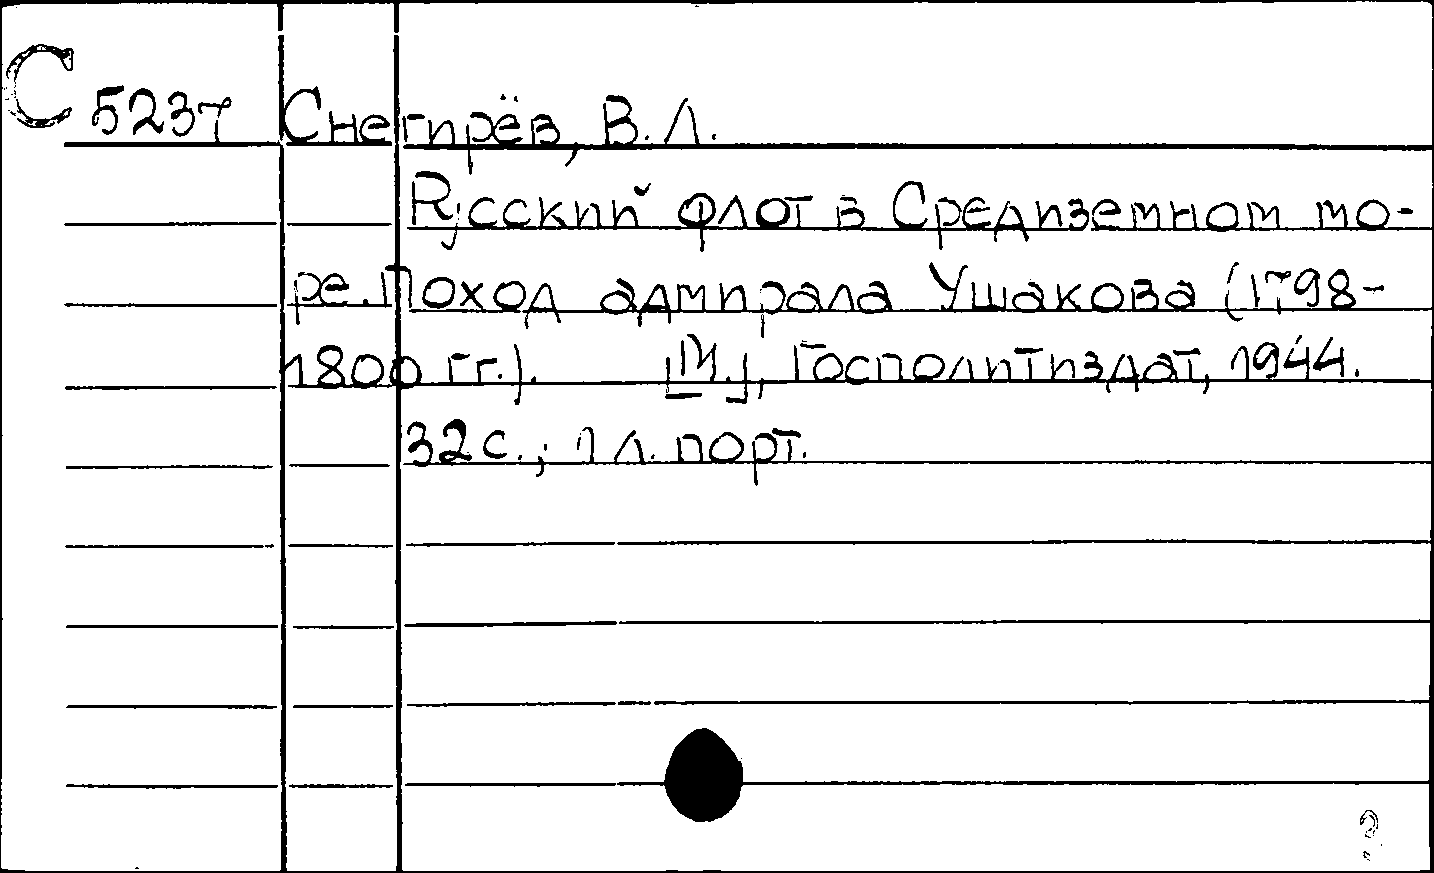 С 5237 Снегирёв, В. Л.
Русский флот в Средиземном мо-
ре. Поход адмирала Ушакова (1798-
1800 гг.). [М.], Госполитиздат, 1944.
32 с.; 1 л. порт.
?